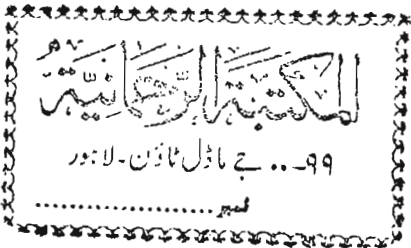 المكتبة الرحمانية
۹۹۔.. جے ماڈل ٹاؤن۔ لاہور
نمبر........................